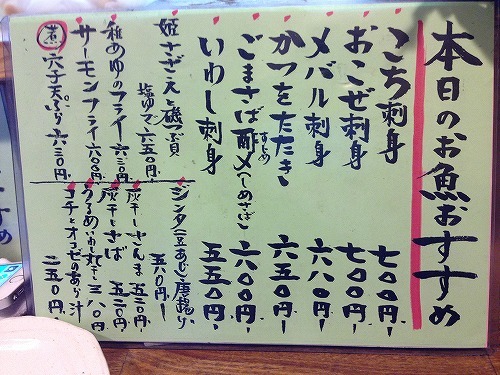 本日のお魚おすすめ
こち刺身 七〇〇円
おこぜ刺身 七〇〇円
メバル刺身 六八〇円
かつをたたき 六五〇円
ごまさば酢〆(しめさば) 六〇〇円
すじめ
いわし刺身 五五〇円
姫さざえ 磯つぶ貝
塩ゆで 六五〇円
稚あゆのフライ 六三〇円
サーモンフライ 六〇〇円
煮 穴子天ぷら 六三〇円
ジンタ(豆あじ)唐揚げ
五八〇円
灰干しさんま 五二〇円
灰干しさば 五二〇円
うるめいわし丸干し 三八〇円
コチとオコゼのあら汁
二五〇円
すすめ